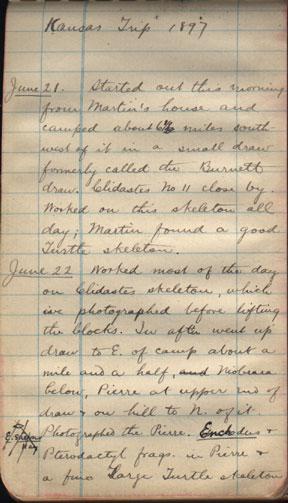 Kansas Trip 1897
June 21. Started out this morning
from Martin's house and
camped about 6½ miles south-
west of it in a small draw
formerly called the Burnett
draw. Clidastes No 11 close by.
Worked on this skeleton all
day; Martin found a good
Turtle skeleton.
June 22 Worked most of the day
on Clidastes skeleton, which
we photographed before lifting
the blocks. In aft. went up
draw to E. of camp about a
mile and a half, and Niobrara
below, Pierre at upper end of
draw & on hill to N. of it.
Photographed the Pierre. Enchodus &
Pterodactyl frags. in Pierre &
a fine large Turtle skeleton